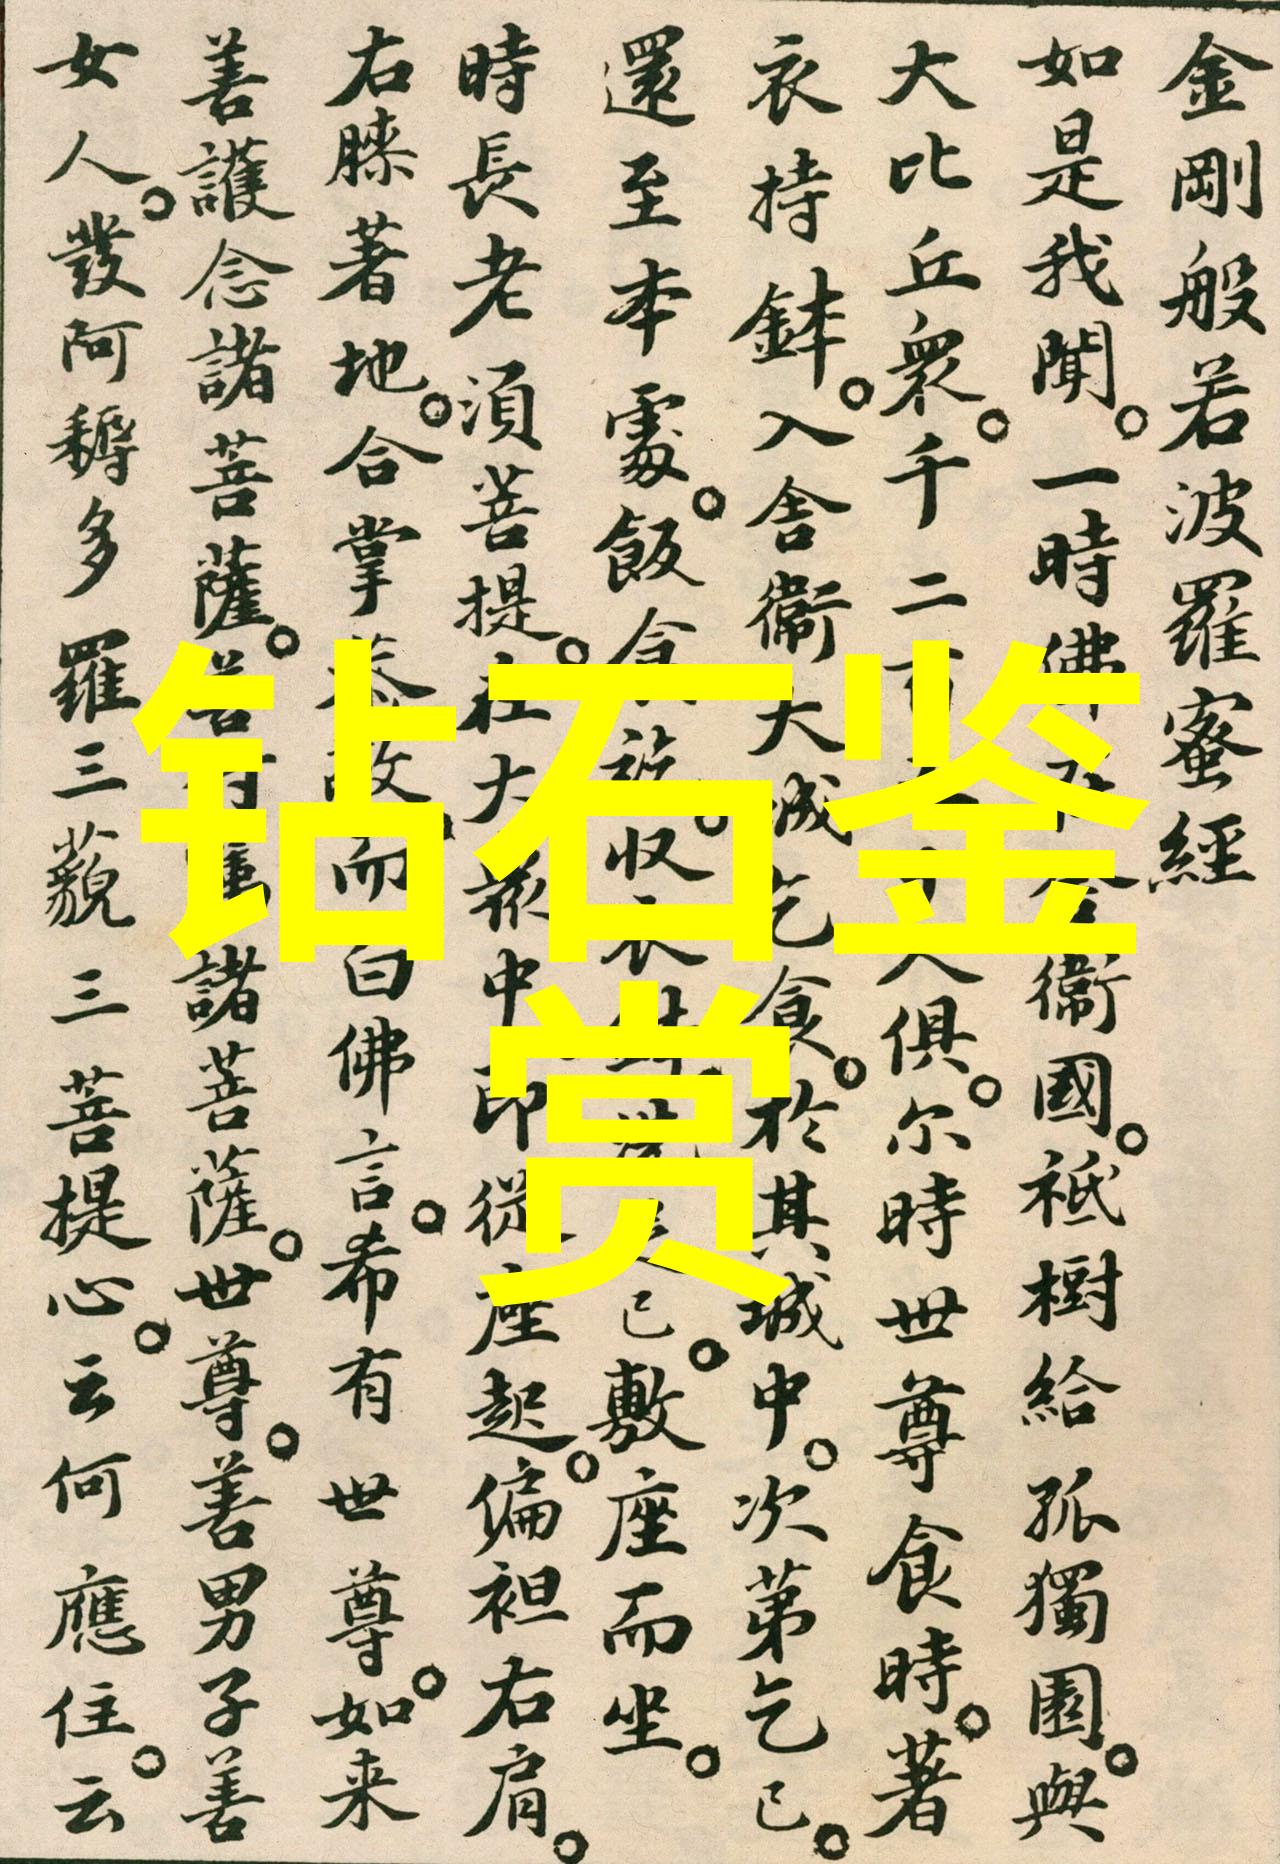 金剛般若波羅蜜經
如是我聞。一時佛在舍衛國。祗樹給孤獨園。與
大比丘衆。千二百人俱。尔時世尊食時。著
衣持鉢。入舍衛大城乞食。於其城中。次第乞已。
還至本處。飯食訖。收衣鉢。已。敷座而坐。
時長老湏菩提。在大衆中即從座起。偏袒右肩。
右膝著地。合掌恭敬。而白佛言。希有世尊。如来
善護念諸菩薩。善付囑諸菩薩。世尊。善男子善
女人。發阿耨多羅三藐三菩提心。云何應住。云
钻石鉴
赏